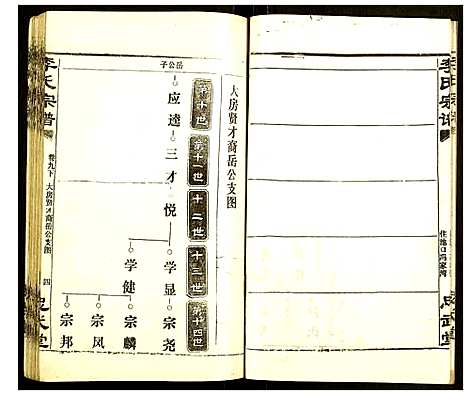 李氏宗谱
住池口冯家湾
大房贤才裔岳公支图
第十世
第十一世
十二世
十三世
第十四世
岳公子
应逵
三才
悦
学显
学健
宗尧
宗麟
宗凤
宗邦
李氏宗谱
卷九下
大房贤才裔岳公支图
四